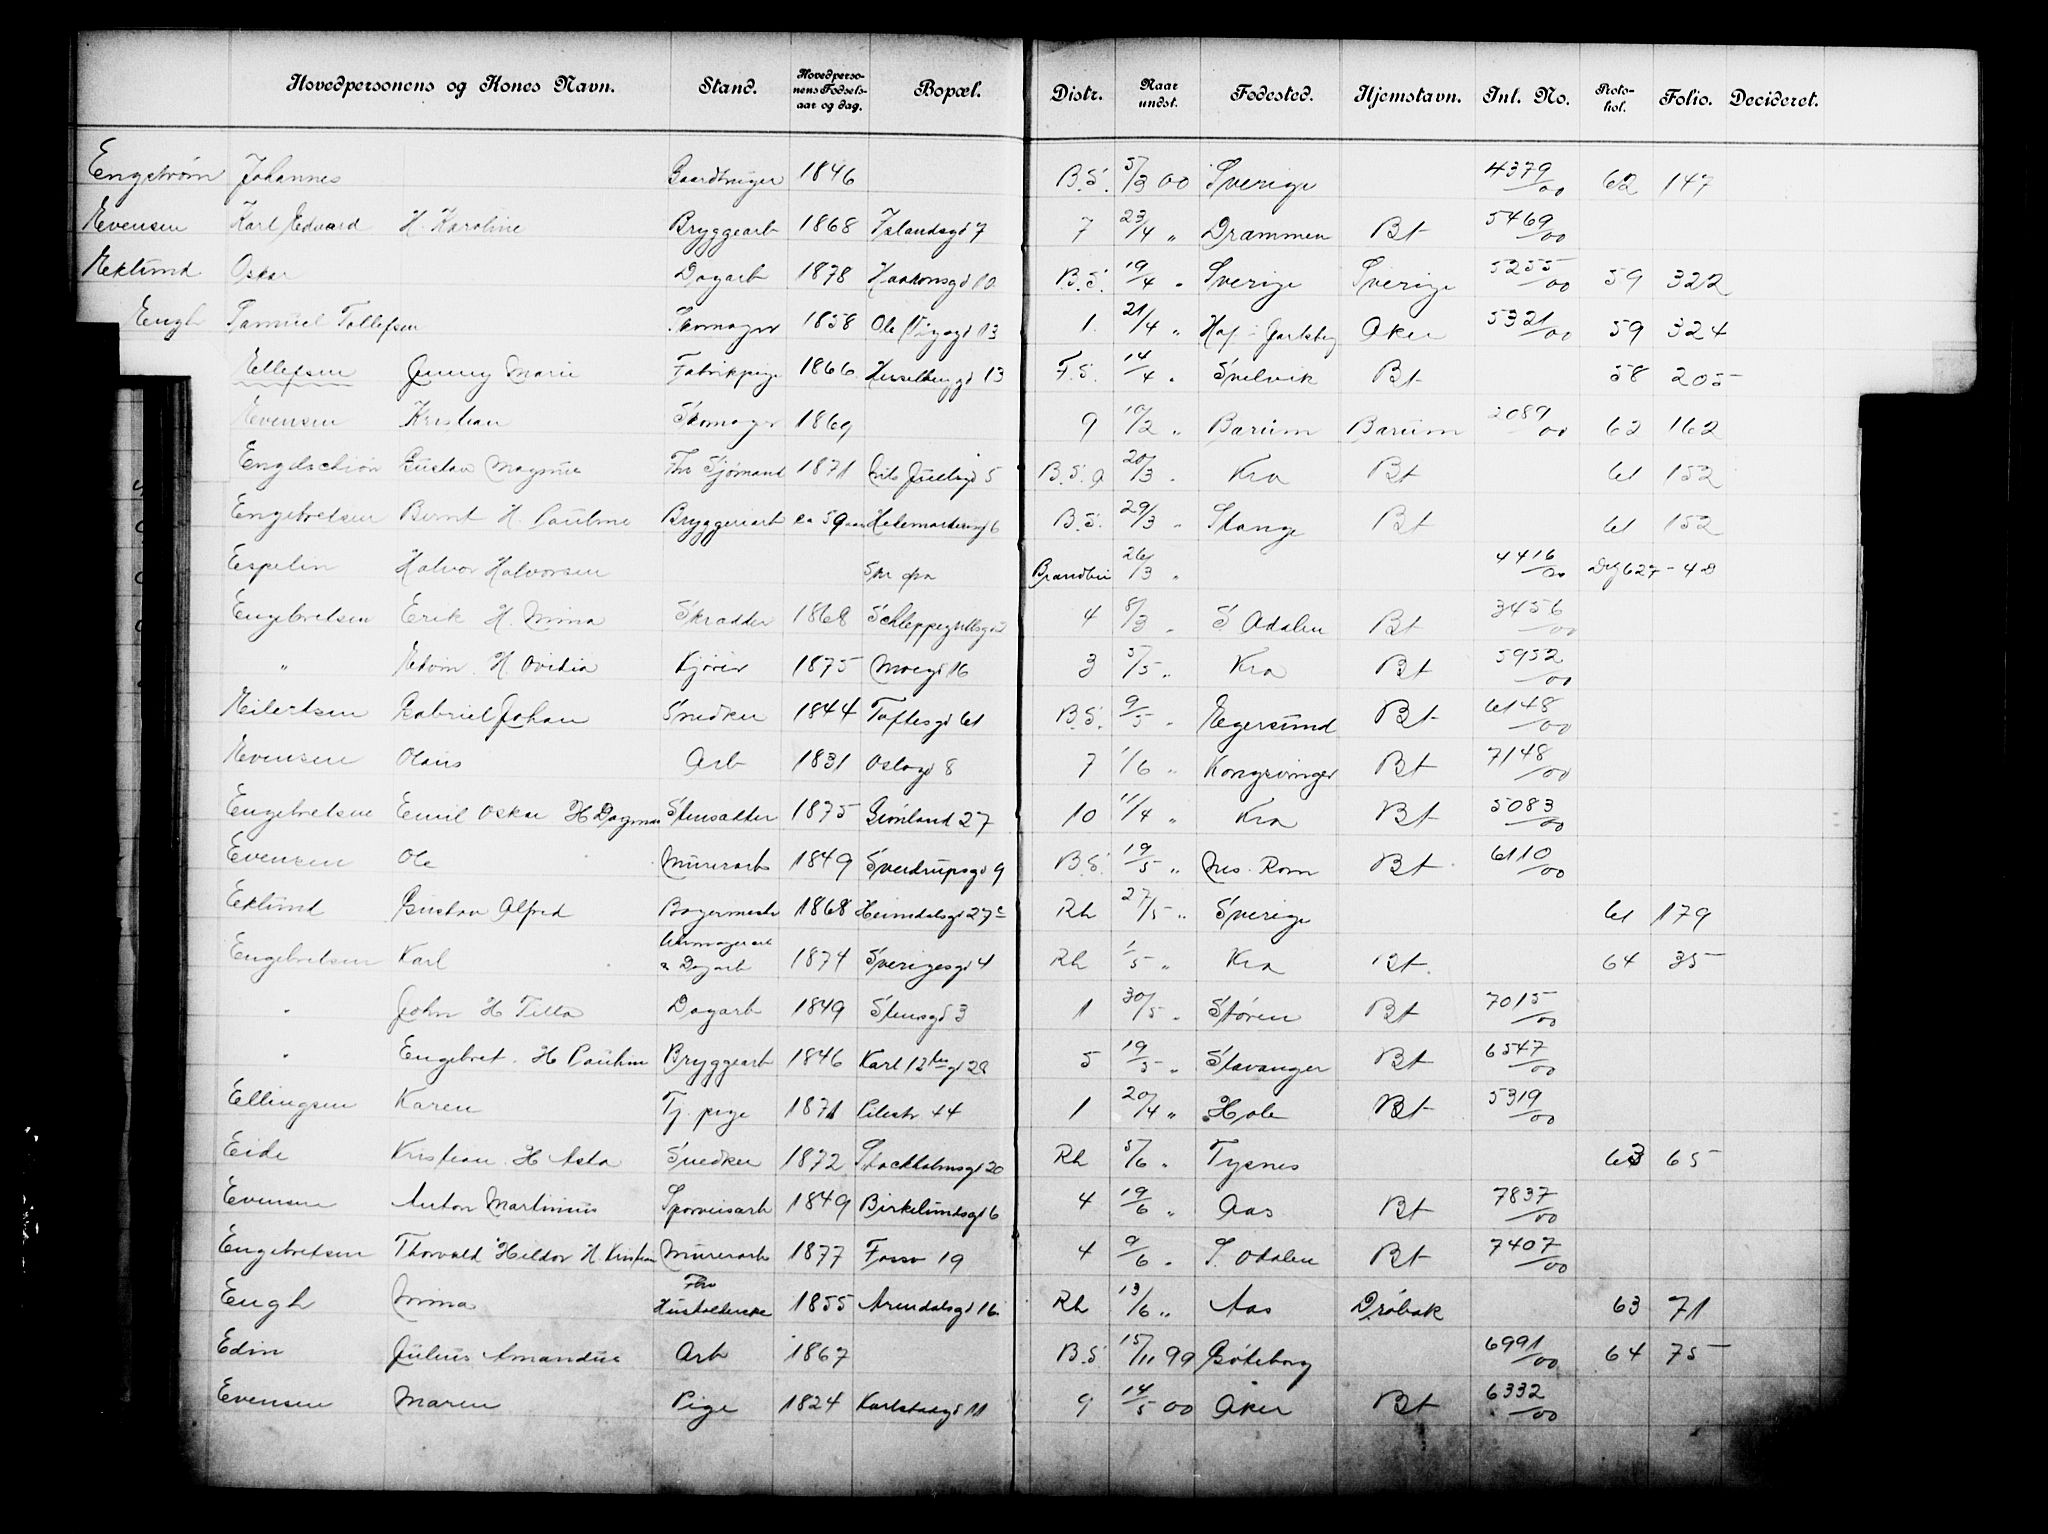 Hovedpersonens og Kones Navn. Stand. Hovedperso-nens Fødsels-aar og dag. Bopæl. Distr. Naar undst. Fødested. Hjemstavn. Int. No. Proto-kol. Folio. Decideret.
Engstrøm Johannes 1846 B.S. 5/3 00 Sverige 4379/00 62 147
Evensen Karl Edvard H. Karoline Bryggearb 1868 Islandsgd 7 7 23/4 " Drammen Bt 5469/00
Eklund Oskar Dagarb 1878 Haakonsgd 10 B.S. 19/4 " Sverige Sverige 5255/00 59 322
Engh Samuel Tollefsen Skomager 1858 Ole Vigsgd 13 1. 21/4 " Hof i Jarlsberg Aker 5321/00 59 324
Ellefsen Jenny Marie Fabrikpige 1866 Hesselberggd 13 F.S. 14/4 " Svelvik Bt 58 205
Evensen Kristian Skomager 1869 9 10/2 " Bærum Bærum 2089/00 62 162
Engelschiøn Gustav Magnus Fhv Sjømand 1871 Nils Juelsgd 5 B.S. 9 20/3 " Kra Bt 61 152
Engebretsen Bernt H. Pauline Bryggeriarb ca 59 aar Hedemarkensgd 6 B.S. 29/3 " Stange Bt 61 152
Espelin Halvor Halvorsen Skr fra 26/3 " 4416/00
Engebretsen Erik H. Mina Skrædder 1868 Schleppegrellsgd 4 8/3 " S Odalen Bt 3456/00
" Edvin H. Ovidia Kjører 1875 Moegd 16 3 5/5 " Kra Bt 5952/00
Eilertsen Gabriel Johan Snedker 1844 Toftesgd 61 B.S. 9/5 " Egersund Bt 6148/00
Evensen Olaus Arb 1831 Oslogd 8 7 1/6 " Kongsvinger Bt 7148/00
Engebretsen Emil Oskar H Dagmar Stensætter 1875 Grønland 27 10 11/4 " Kra Bt 5083/00
Evensen Ole Murerarb 1849 Sverdrupsgd 9 B.S. 19/5 " Nes. Rom Bt 6110/00
Eklund Gustav Alfred Bagermestr 1868 Heimdalsgd 27c Rh 27/5 " Sverige 61 179
Engebretsen Karl Urmagerarb & Dagarb 1874 Sverigesgd 4 Rh 1/5 " Kra Bt. 64 35
" John H Tilla Dagarb 1849 Stensgd 3 1 30/5 " Støren Bt 7015/00
" Engebret H Pauline Bryggearb 1846 Karl 12tes gd 28 5 19/5 " Stavanger Bt 6547/00
Ellingsen Karen Tj. pige 1871 Pilestr 44 1 20/4 " Hole Bt 5319/00
Eide Kristian H Asta Snedker 1872 Stockholmsgd 20 Rh 5/6 " Tysnes 63 65
Evensen Anton Martinius Sporveisarb 1849 Birkelundsgd 6 4 19/6 " Aas Bt 7837/00
Engebretsen Thorvald Hildor H. Kristian Murerarb 1877 Fossv 19 4 9/6 " S. Odalen Bt 7407/00
Engh Mina Fhv Husholderske 1855 Arendalsgd 16 Rh 13/6 " Aas Drøbak 63 71
Edin Julius Amandus Arb 1867 B.S 15/11 99 Gøteborg 6991/00 64 75
Evensen Maren Pige 1824 Karlstadgd 11 9 14/5 00 Aker Bt 6332/00